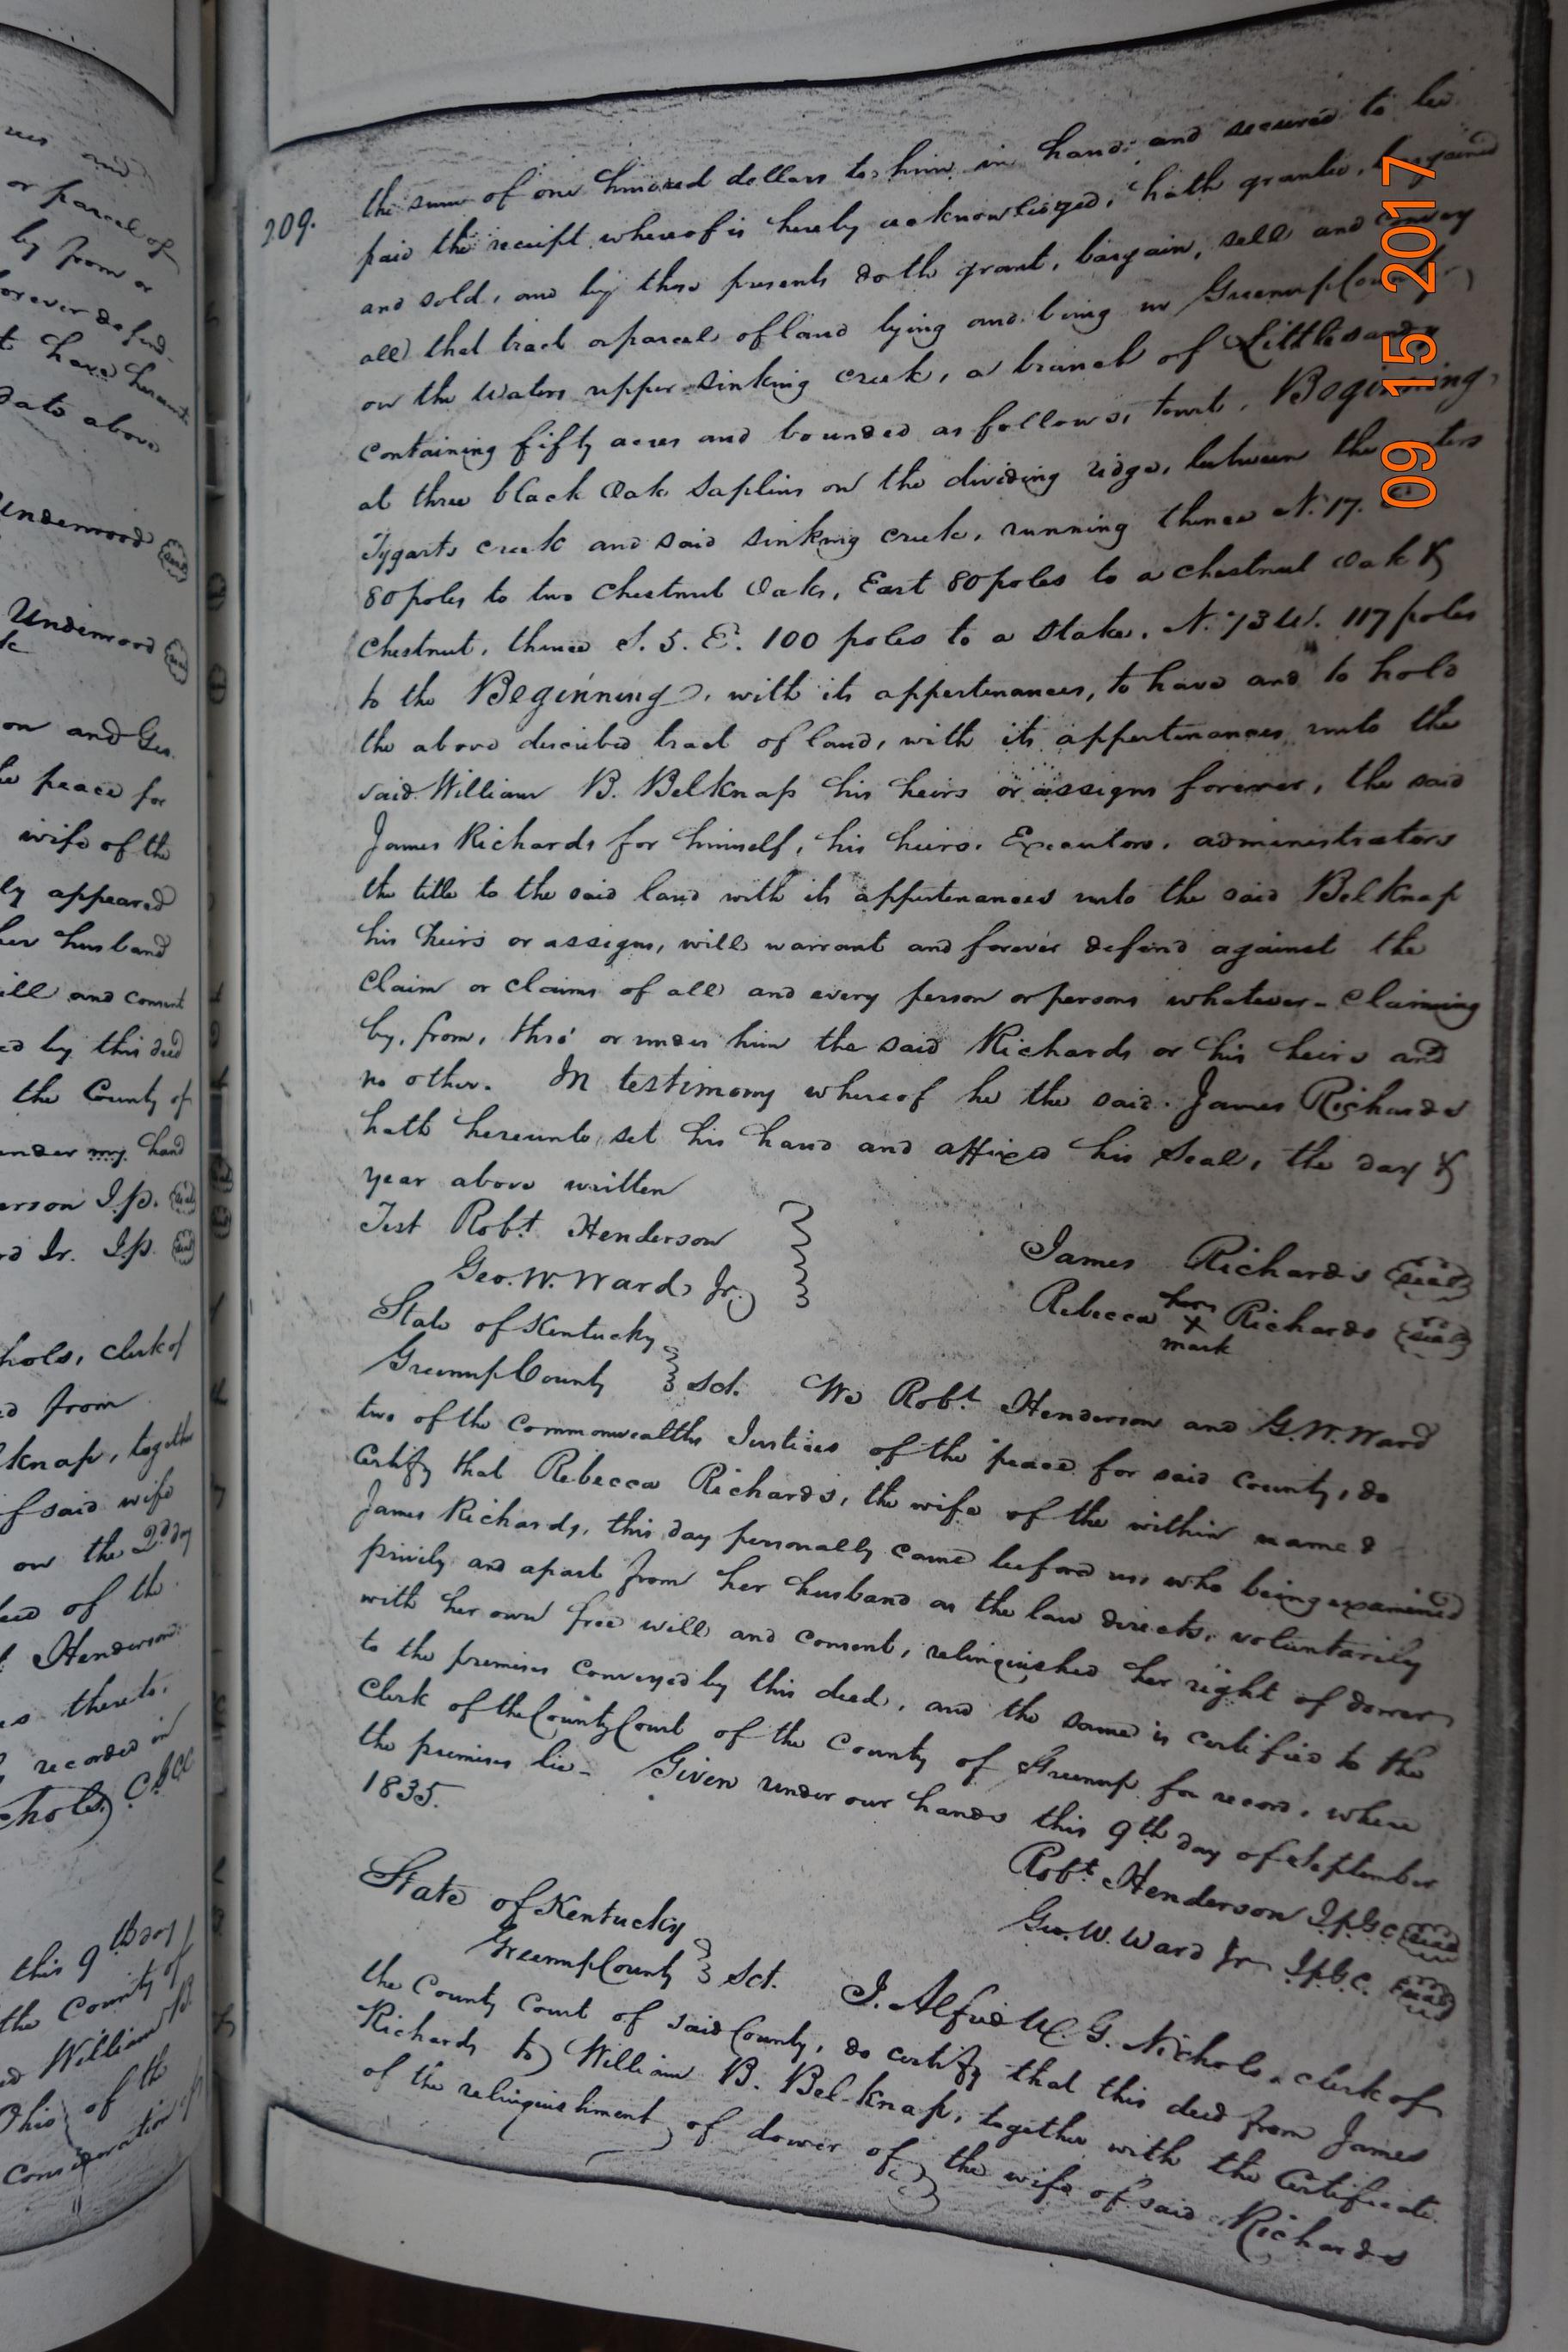 ves and
or parcel of
by from or
forever defend
have hereunto
date above
Underwood (seal)
Underwood (seal)
on and Geo.
he peace for
wife of the
ly appeared
her husband
ill and consent
ed by this deed
the County of
under my hand
erson J.p. (seal)
rd Jr. J.p. (seal)
hols, clerk of
d from
knap, together
f said wife
on the 2d day
deed of the
Henderson
s thereto,
recorded in
chols C.G.C.C
this 9th day
the County of
William B.
Ohio of the
Consideration of
209.
the sum of one hundred dollars to him in hand and secured to be
paid the receipt whereof is hereby acknowledged, hath granted, bargained
and sold, and by these presents doth grant, bargain, sell and convey
all that tract or parcel of land lying and being in Greenup County
on the waters upper sinking creek, a branch of Little sandy
containing fifty acres and bounded as follows, towit, Beginning,
at three black Oak Saplins on the dividing ridge, between the
Tygarts creek and said sinking creek, running thence N. 17.
80 poles to two Chestnut Oaks, East 80 poles to a chestnut Oak &
chestnut, thence S. 5. E. 100 poles to a Stake, N. 73 W. 117 poles
to the Beginning, with its appertenances, to have and to hold
the above described tract of land, with its appertenances unto the
said William B. Belknap his heirs or assigns forever, the said
James Richards for himself, his heirs, Executors, administrators
the title to the said land with its appertenances unto the said Belknap
his heirs or assigns, will warrant and forever defend against the
claim or claims of all and every person or persons whatever - claiming
by, from, thro' or under him the said Richards or his heirs and
no other. In testimony whereof he the said James Richards
hath hereunto set his hand and affixed his Seal, the day &
year above written
Test Robt. Henderson
Geo. W. Ward, Jr.
James Richards (seal)
Rebecca her x mark Richards (seal)
State of Kentucky
Greenup County Sct. We Robt. Henderson and G. W. Ward
two of the commonwealths Justices of the peace for said County, do
Certify that Rebecca Richards, the wife of the within named
James Richards, this day personally came before us who being examined
privily and apart from her husband as the law directs, voluntarily
with her own free will and consent, relinquished her right of dower
to the premises conveyed by this deed, and the same is certified to the
Clerk of the County Court of the County of Greenup for record, where
the premises lie - Given under our hands this 9th day of September
1835.
Robt. Henderson J.p.G.C (seal)
Geo. W. Ward Jr J.p.G.C. (seal)
State of Kentucky
Greenup County Sct. I. Alfred G. Nichols, clerk of
the County Court of said County, do certify that this deed from James
Richards to William B. Belknap, together with the Certificate
of the relinquishment of dower of the wife of said Richards
09 15 2017